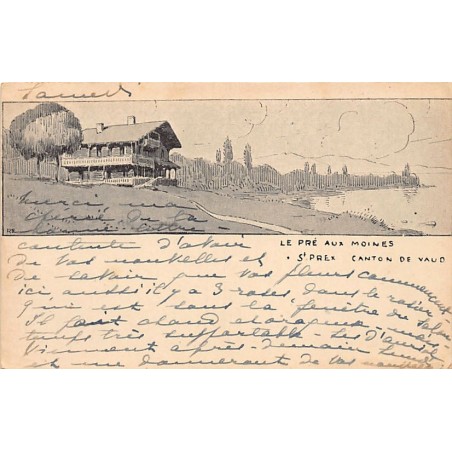 Samedi
Merci, ma
chérie de ta
bonne lettre
contente d'avoir
LE PRÉ AUX MOINES
de vos nouvelles et
St PREX CANTON DE VAUD
de savoir que vos fleurs commencent
ici aussi il y a 3 roses dans le rosier
qui est sous la fenêtre du salon
Il fait chaud et orageux mais
temps très supportable. Les D'
viennent après-demain lundi
et me donneront de vos nouvelles